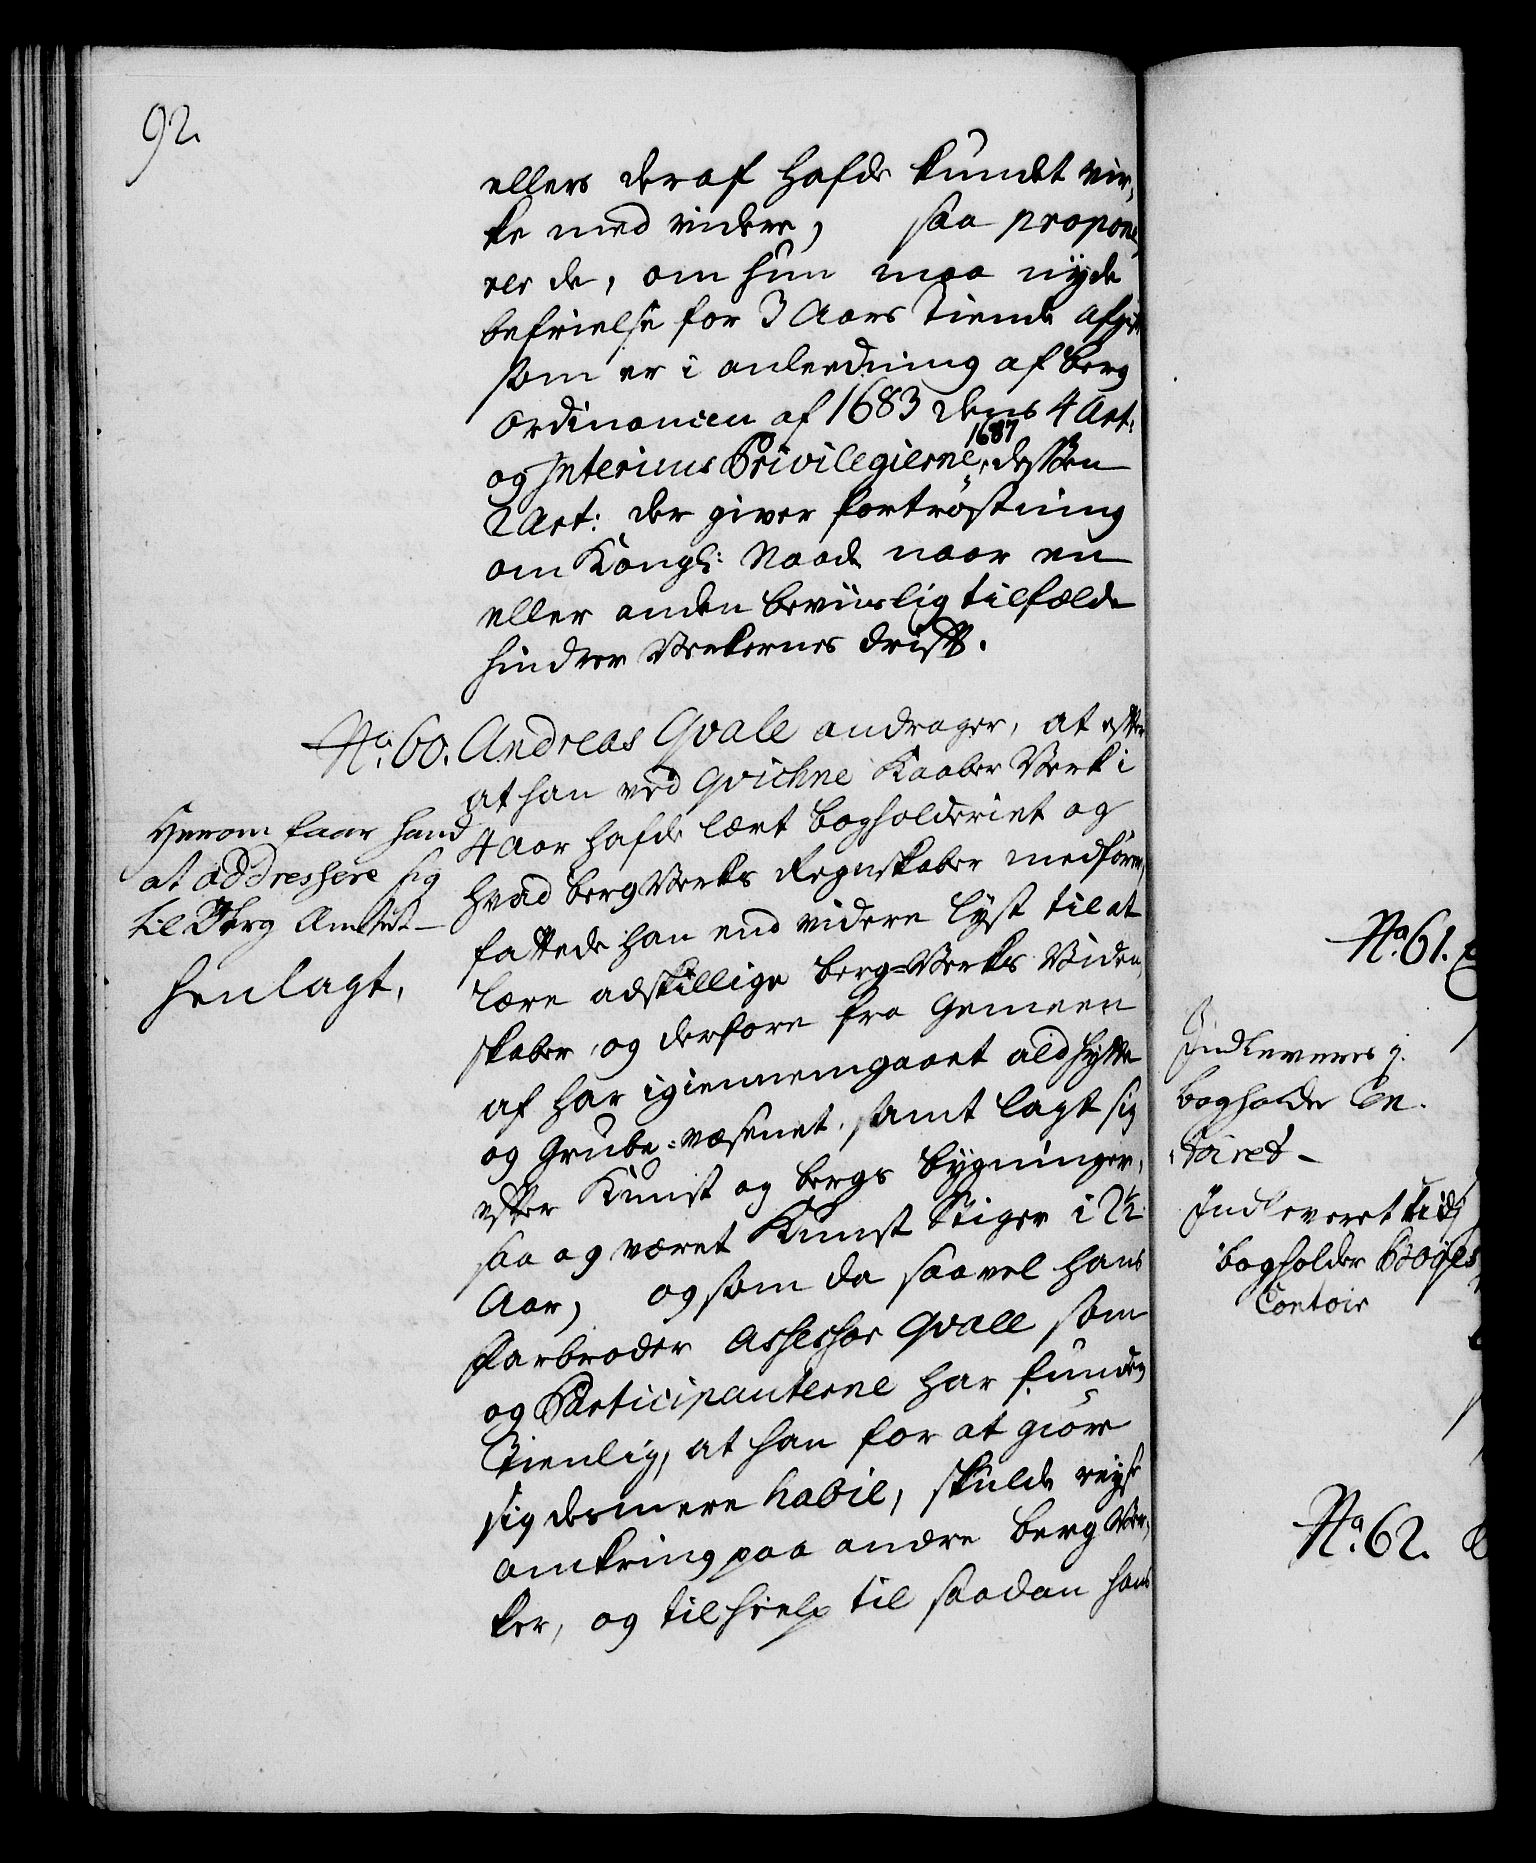 92.
ellers deraf hafde kundet vir,
ke med videre, saa propone,
rer de, om hun maa nyde
befrielse for 3 Aars Tiende afgift
som er i anleedning af berg
Ordinancen af 1683 dens 4 Art:
og Interims Privilegierne 1687 dessen
2 Art: der giver fortrøstning
om Kongl: Naade naar en
eller anden beviislig tilfælde
hindrer Verkernes drifft.
No. 60. Andreas Qvale andrager, at efter
at han ved Qvichne Kaaber Verk i
4 Aar hafde lært bogholderiet og
hvad berg Verks Regnskaber medfører,
fattede han end videre lyst til at
lære adskillige berg-Verks Viden,
skaber, og derfore fra Gemeen
af har igiennemgaaet ald hytte
og Grube-væsenet, samt lagt sig
efter Kunst og bergs bygninger,
saa og været Kunst Stiger i 2½
Aar, og som da saavel hans
Farbroder Assessor Qvale som
og Participanterne har funden
tienlig, at han for at giøre
sig desmere habil, skulde reyse
omkring paa andre berg Ver,
ker, og til hielp til saadan hans
Herom faar hand
at addressere sig
til Berg Amtet
henlagt,
No. 61.
Indleveres i
bogholder Con,
toiret
Indleveret til
bogholder
Contoir
No. 62.